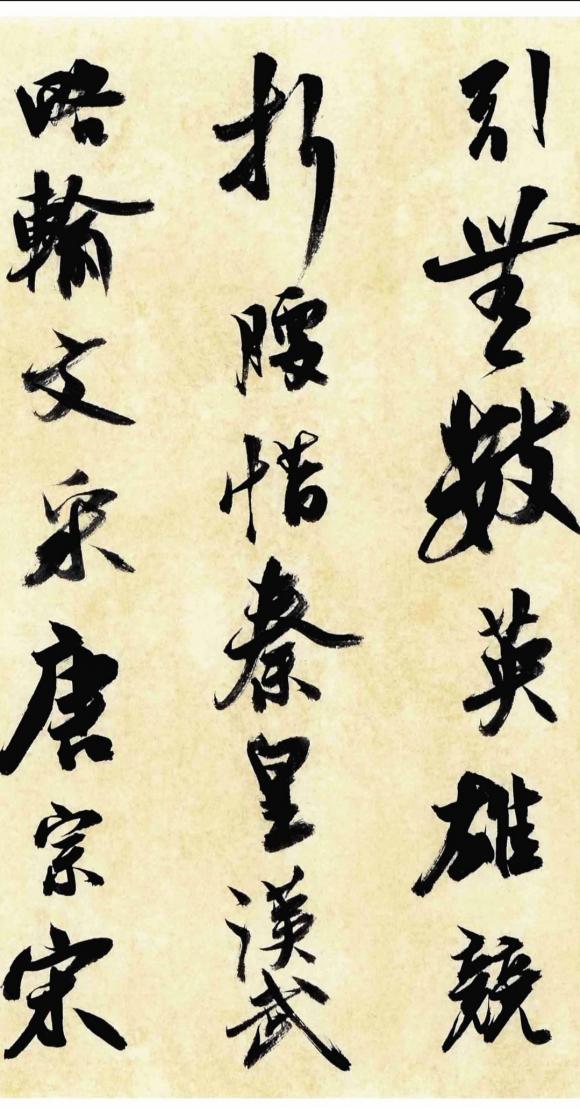 引無數英雄競
折腰惜秦皇漢武
略輸文采唐宗宋